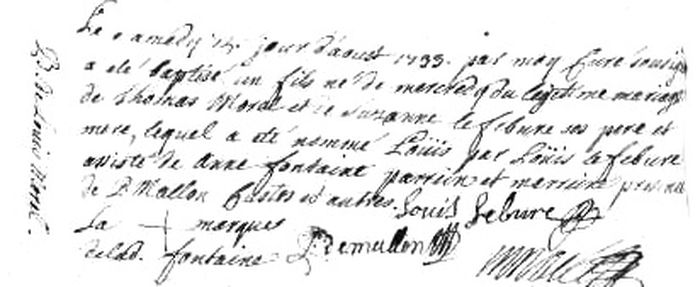 B. de Louis Moral.
Le samedy 15. jour d'aoust 1733. par moy Curé soussigné
a eté baptisé un fils né de mercredy du legitime mariage
de Thomas Moral et de Suzanne lefebure ses pere et
mere, lequel a eté nommé Loüis par Loüis lefebure
assisté de Anne fontaine parrein et marreine presence
de P. Mallon et autres. Louis Lebure
La + marque
delad. fontaine P. demallon